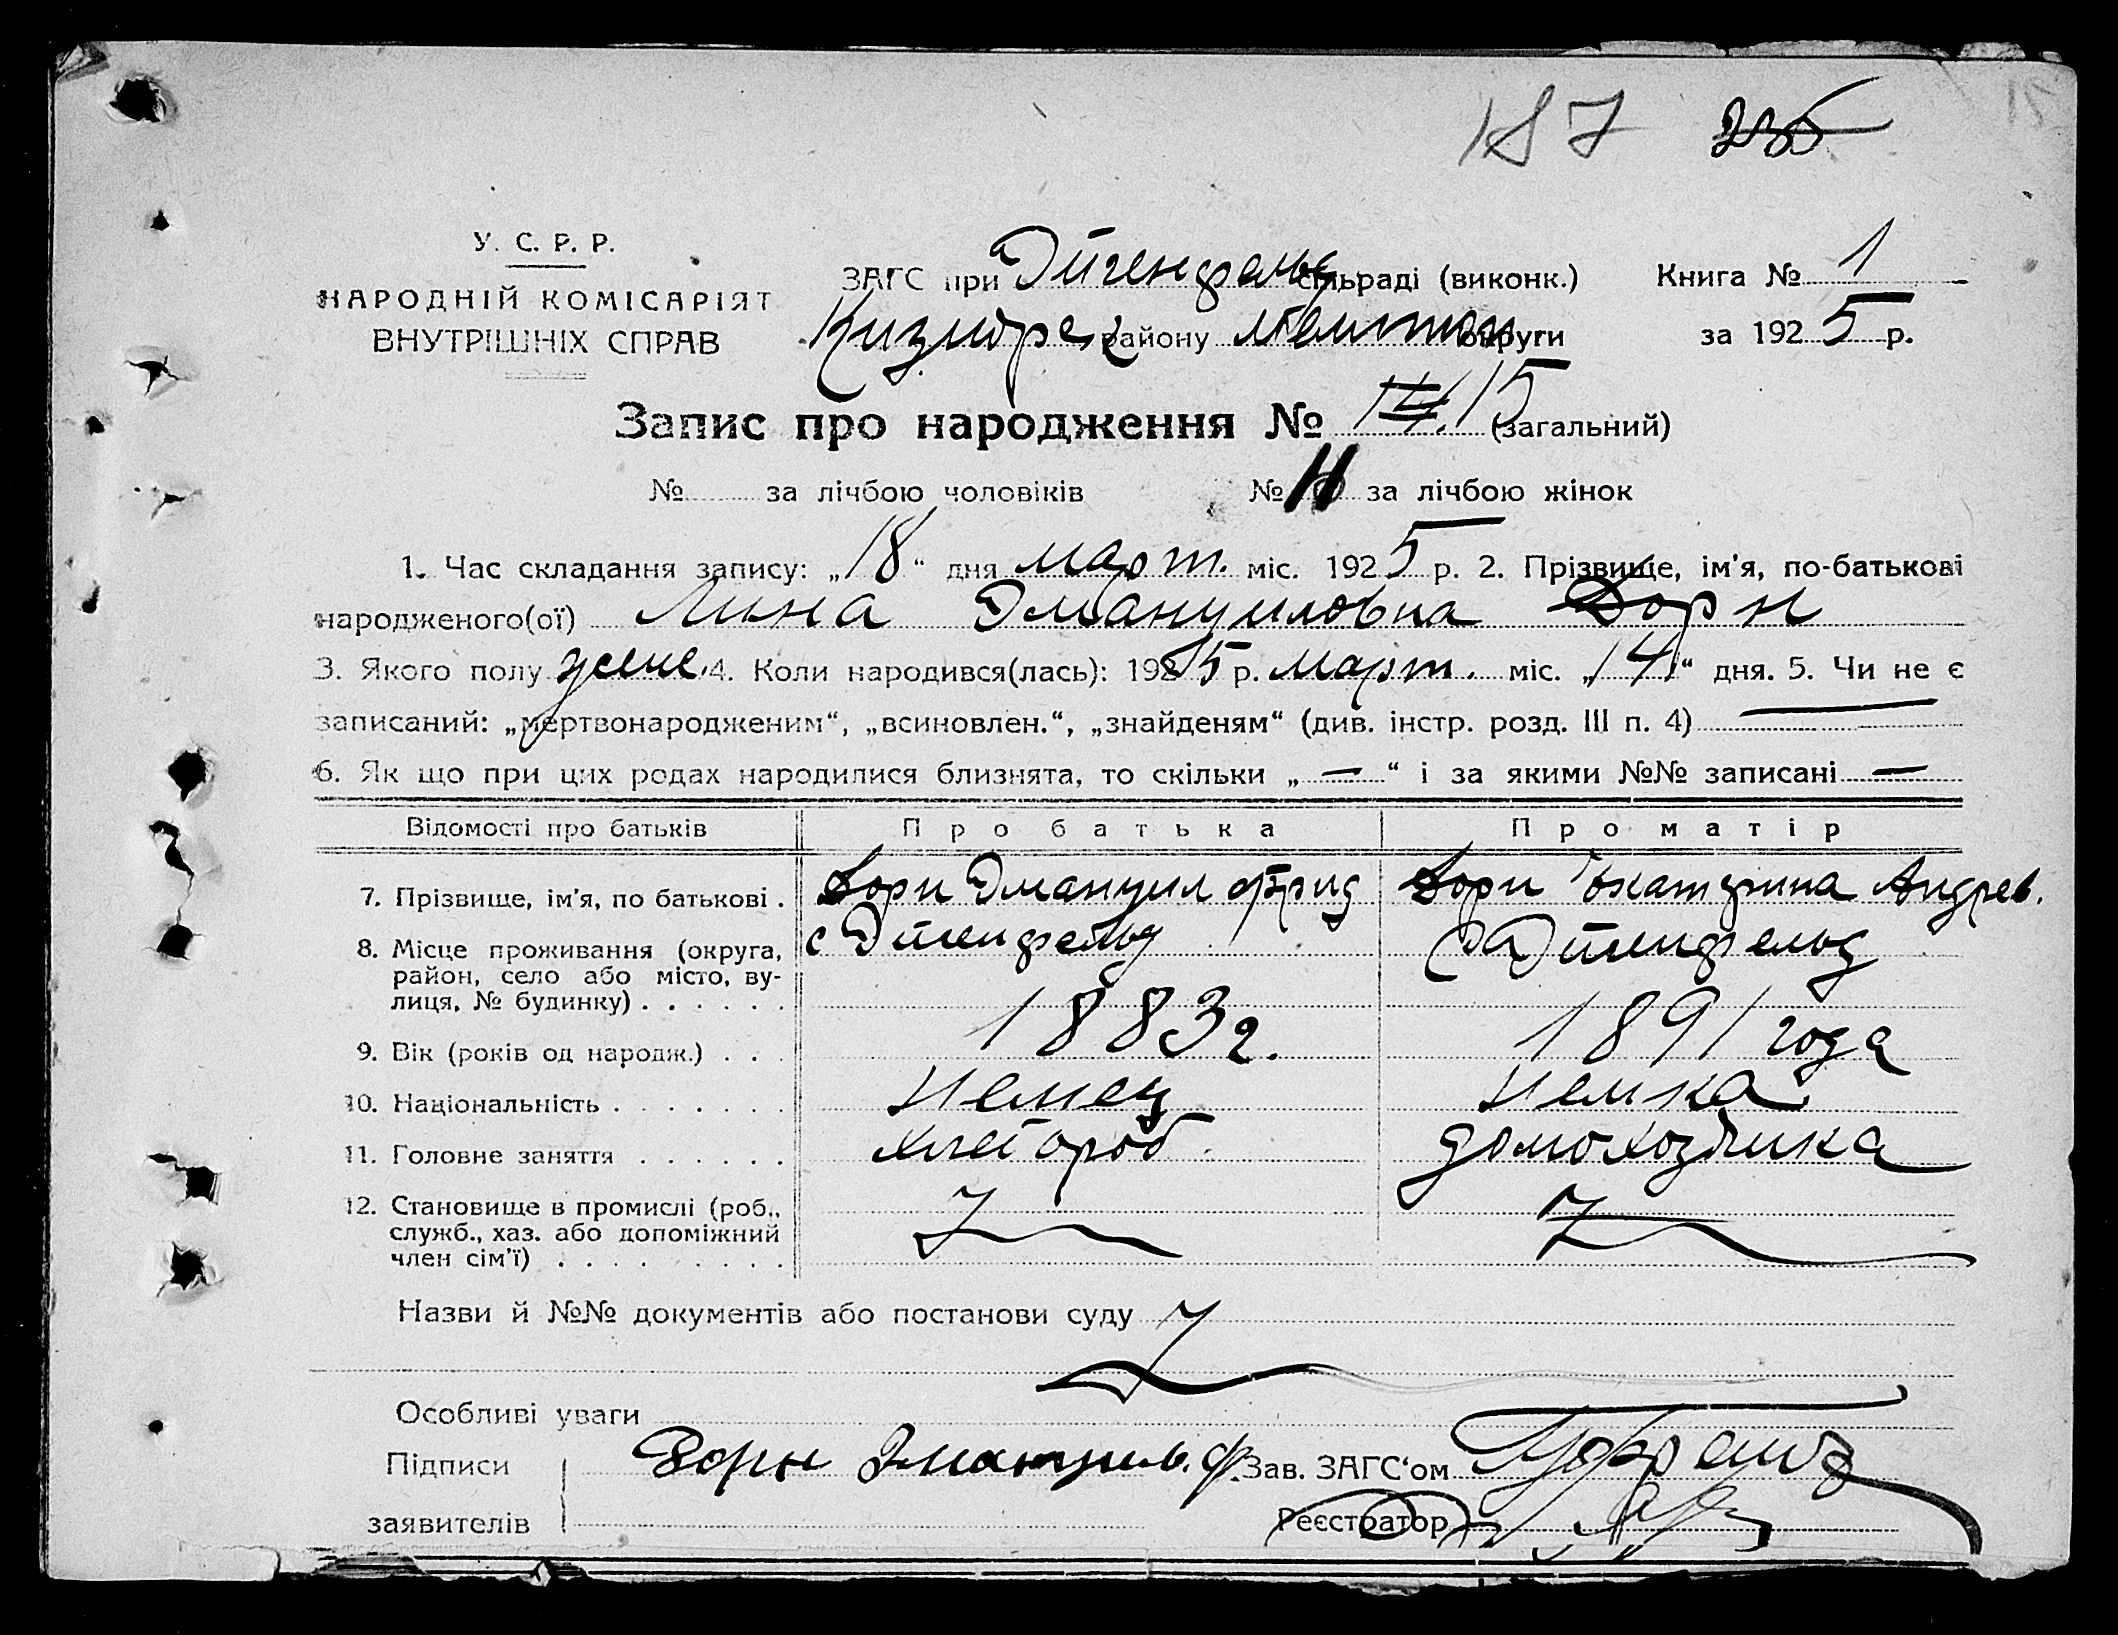 187 235
У. С. Р. Р.
НАРОДНІЙ КОМІСАРІЯТ
ВНУТРІШНІХ СПРАВ
ЗАГС при Эйгенфельд сільраді (виконк.) Книга № 1
району Мелитоп округи за 1925 р.
Запис про народження № 14 15 (загальний)
№ за лічбою чоловіків № 11 за лічбою жінок
1. Час складання запису: „18“ дня март. міс. 1925 р. 2. Прізвище, ім'я, по-батькові
народженого(ої) Лина Эмануиловна Дорн
3. Якого полу жене 4. Коли народився(лась): 1925 р. март. міс. „14“ дня. 5. Чи не є
записаний: „мертвонародженим“, „всиновлен.“, „знайденям“ (див. інстр. розд. III п. 4) —
6. Як що при цих родах народилися близнята, то скільки „—“ і за якими №№ записані —
Відомості про батьків Про батька Про матір
7. Прізвище, ім'я, по батькові . Дорн Эмануил Фрид Дорн Екатерина Андрев.
8. Місце проживання (округа, район, село або місто, ву-лиця, № будинку) . . . . . . с Эйгенфельд Эйгенфельд
9. Вік (років од народж.) . . . 1883 г. 1891 года
10. Національність . . . . . . . Немец Немка
11. Головне заняття . . . . . . хлебороб домохозяйка
12. Становище в промислі (роб., служб., хаз. або допоміжний член сім'ї) . . . . . . . . .
Назви й №№ документів або постанови суду
Особливі уваги
Підписи Дорн Эмануил. Ф. Зав. ЗАГС'ом
заявителів Реєстратор